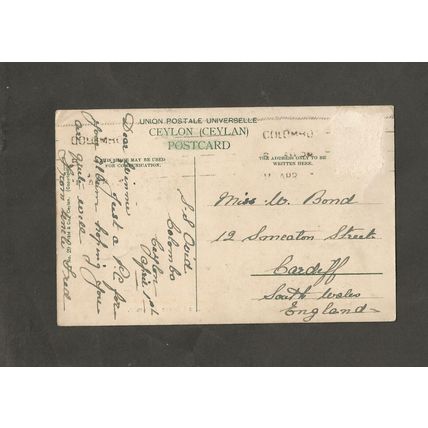 UNION POSTALE UNIVERSELLE
CEYLON (CEYLAN)
POSTCARD
THIS SPACE MAY BE USED
FOR COMMUNICATION.
THE ADDRESS ONLY TO BE
WRITTEN HERE.
COLOMBO
COLOMBO
11 APR
S.S Ovid
Colombo
Ceylon
April 1st
Dear Winnie
Just a P.C for
your album hoping you
are quite well I
From Uncle Fred
Miss W. Bond
12 Smeaton Street
Cardiff
South Wales
England